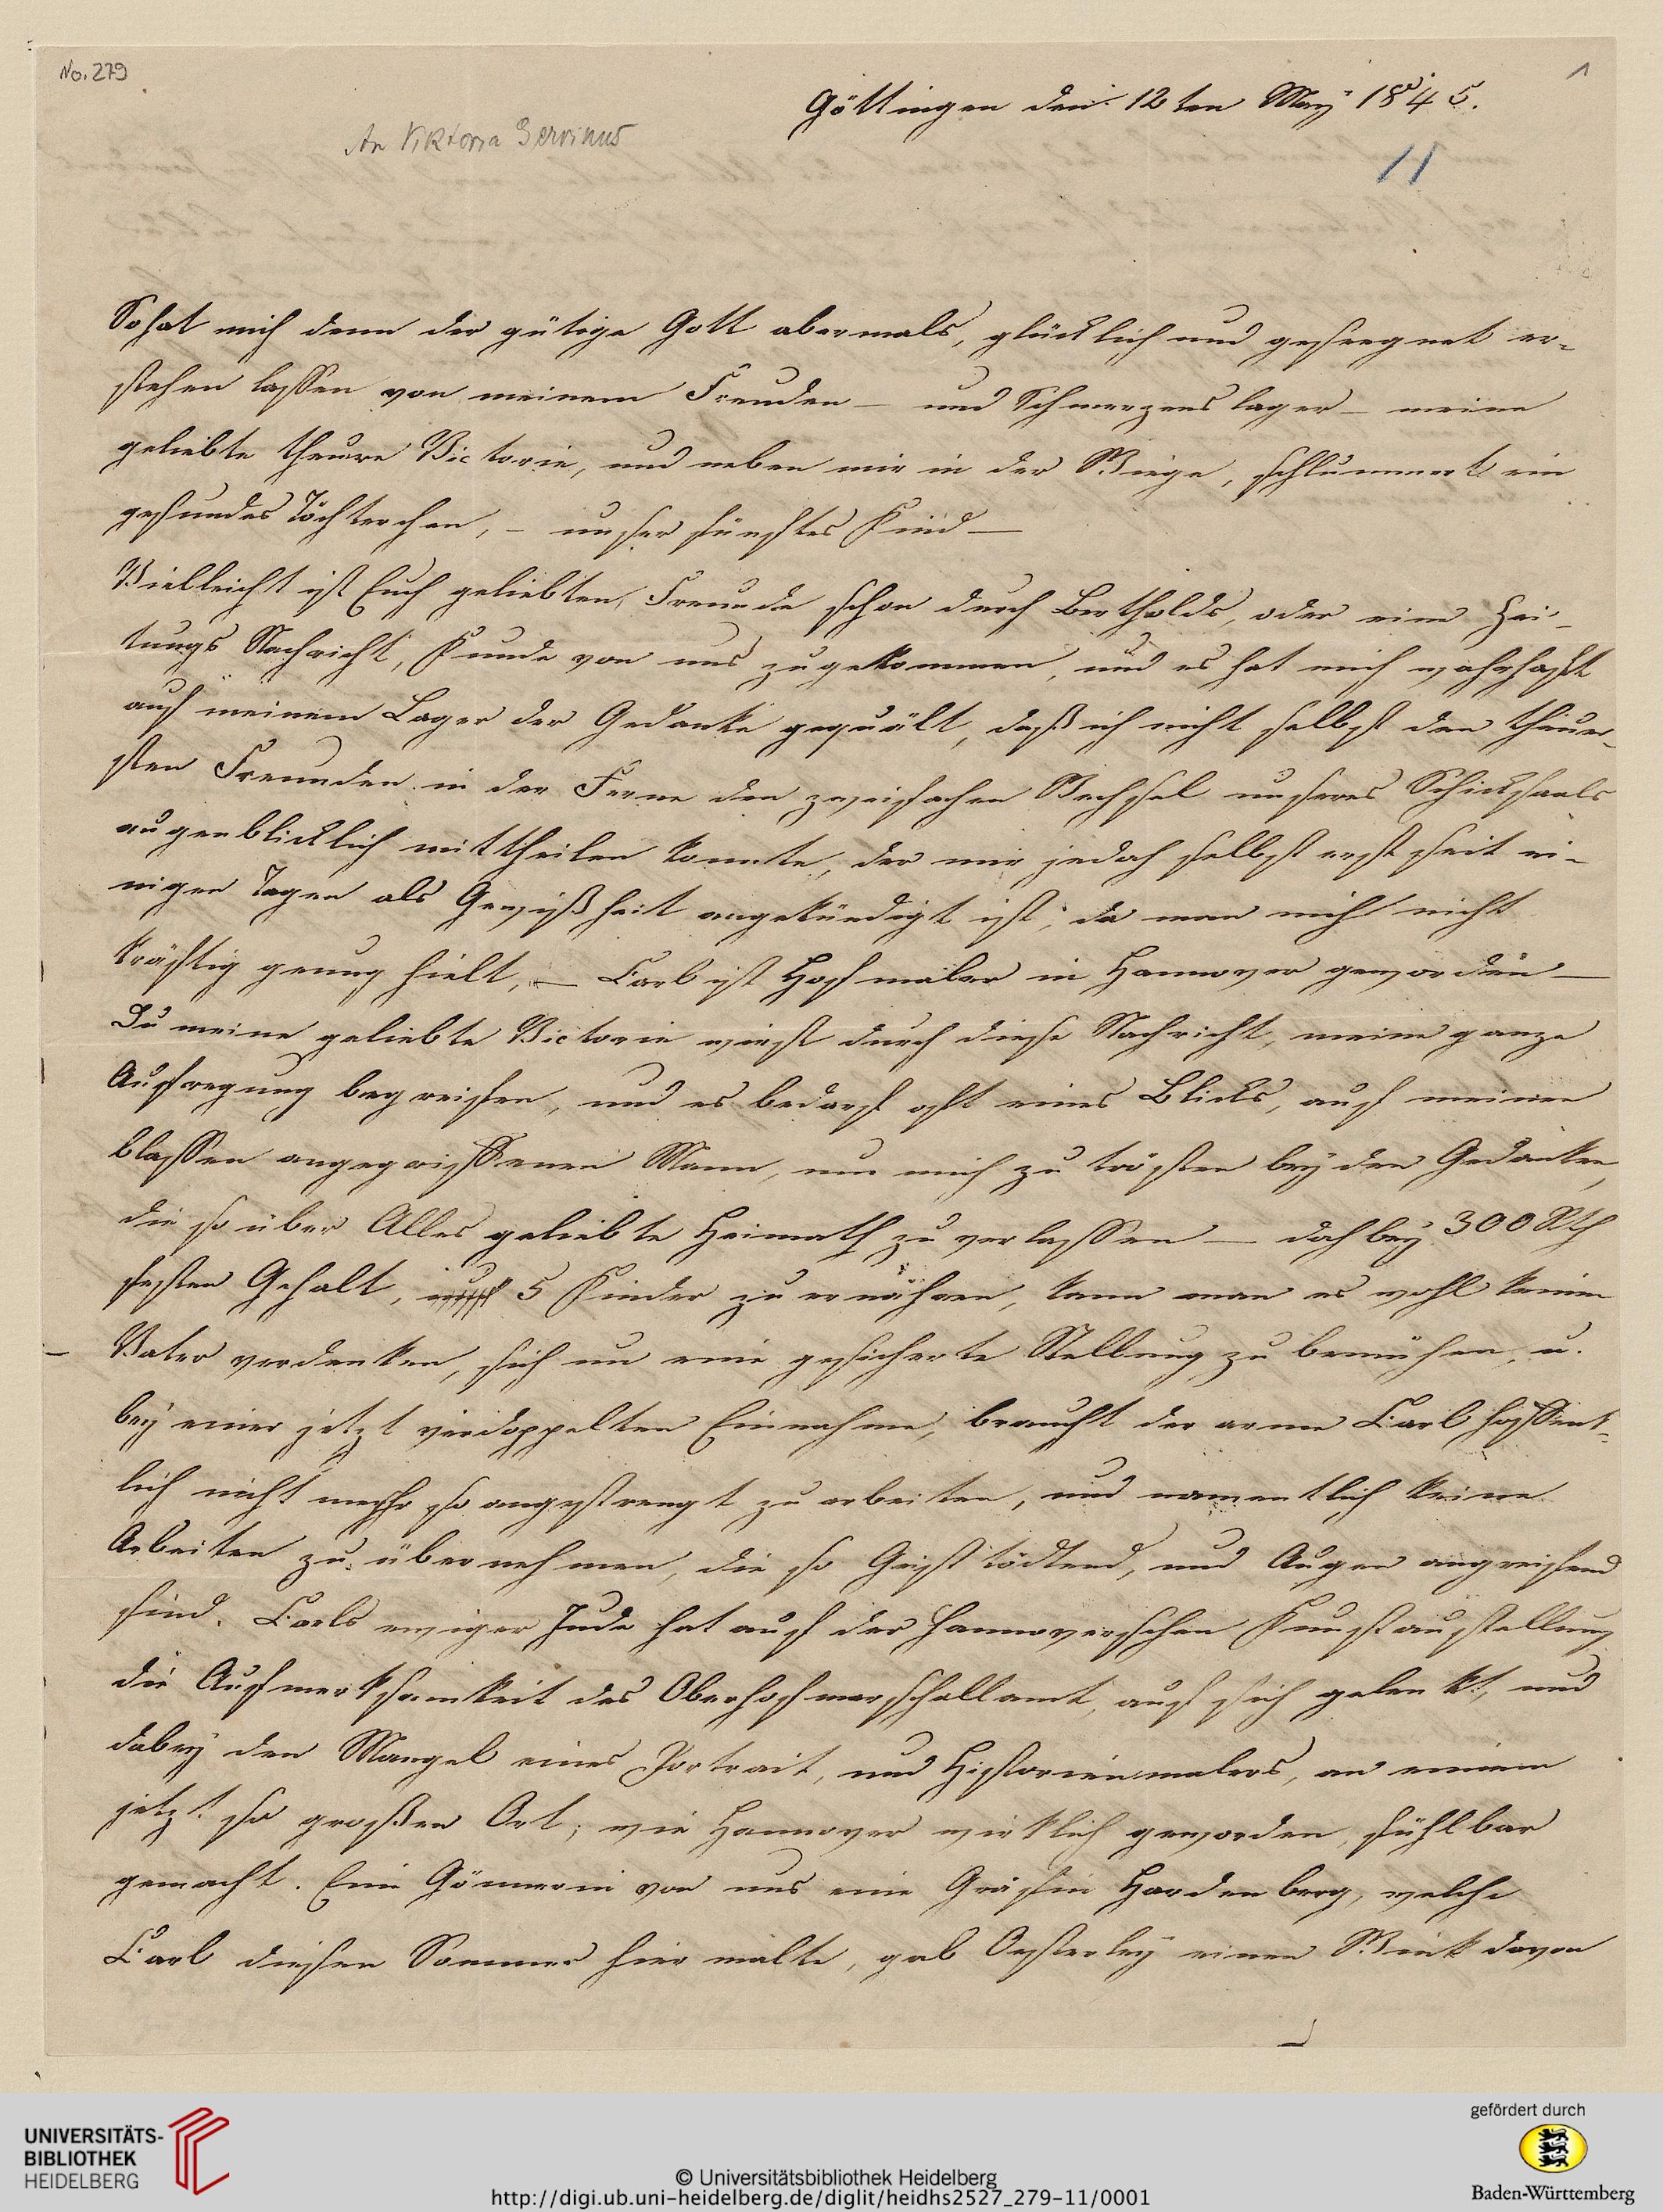 No. 279
1
Göttingen den 12ten May 1845.
An Viktoria Gervinus
11
So hat mich denn der gütige Gott abermals, glücklich und geseegnet er-
stehen lassen von meinem Freuden – und Schmerzenslager – meine
geliebte theure Victorie, und neben mir in der Wiege, schlummert ein
gesundes Töchterchen, – unser fünftes Kind –
Vielleicht ist Euch geliebten, Freunde schon durch Bertholds, oder eine Zei-
tungs Nachricht, Kunde von uns zugekommen, und es hat mich wahrhaft
auf meinem Lager der Gedanke gequält, daß ich nicht selbst den theuer-
sten Freunden in der Ferne den zweifachen Wechsel unseres Schicksaals
augenblicklich mittheilen konnte, der mir jedoch selbst erst seit ei-
nigen Tagen als Gewißheit angekündigt ist; da man mich nicht
kräftig genug hielt, – Carl ist Hofmaler in Hannover geworden –
Du meine geliebte Victorie wirst durch diese Nachricht, meine ganze
Aufregung begreifen, und es bedarf oft eines Blicks, auf meinen
blassen angegriffenen Mann, um mich zu trösten bey den Gedanken,
die so über Alles geliebte Heimath zu verlassen – doch bey 300 Rth
festen Gehalt, 5 Kinder zu ernähren, kann man es wohl keinem
Vater verdenken, sich um eine gesicherte Stellung zu bemühen, u.
bey einer jetzt verdoppelten Einnahme, braucht der arme Carl hoffent-
lich nicht mehr so angestrengt zu arbeiten, und namentlich keine
Arbeiten zu übernehmen, die so Geist tödtend, und Augen angreifend
sind. Carls ewiger Jude hat auf der hannoverschen Kunstausstellung
die Aufmerksamkeit des Oberhofmarschallamt, auf sich gelenkt, und
dabey den Mangel eines Portrait, und Historienmalers, an einem
jetzt so großen Ort; wie Hannover wirklich geworden, fühlbar
gemacht. Eine Gönnerin von uns eine Gräfin Hardenberg, welche
Carl diesen Sommer hier malte, gab Oesterley einen Wink davon
UNIVERSITÄTS-
BIBLIOTHEK
HEIDELBERG
© Universitätsbibliothek Heidelberg
http://digi.ub.uni-heidelberg.de/diglit/heidhs2527_279-11/0001
gefördert durch
Baden-Württemberg